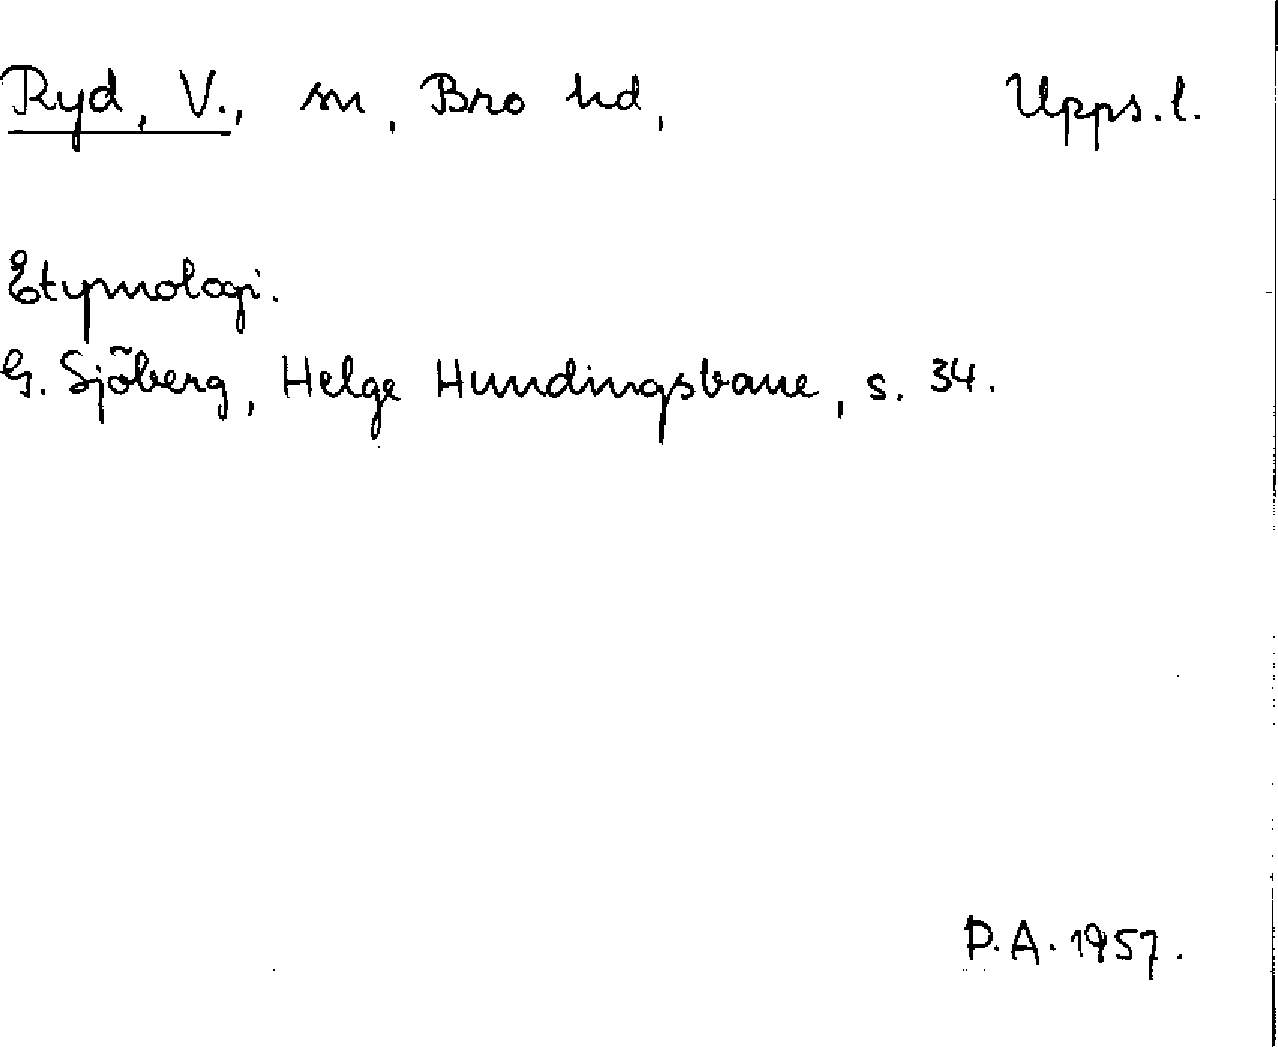 Ryd, V., sn, Bro hd, Upps. l.
Etymologi.
G. Sjöberg, Helge Hundingsbane, s. 34.
P.A. 1957.